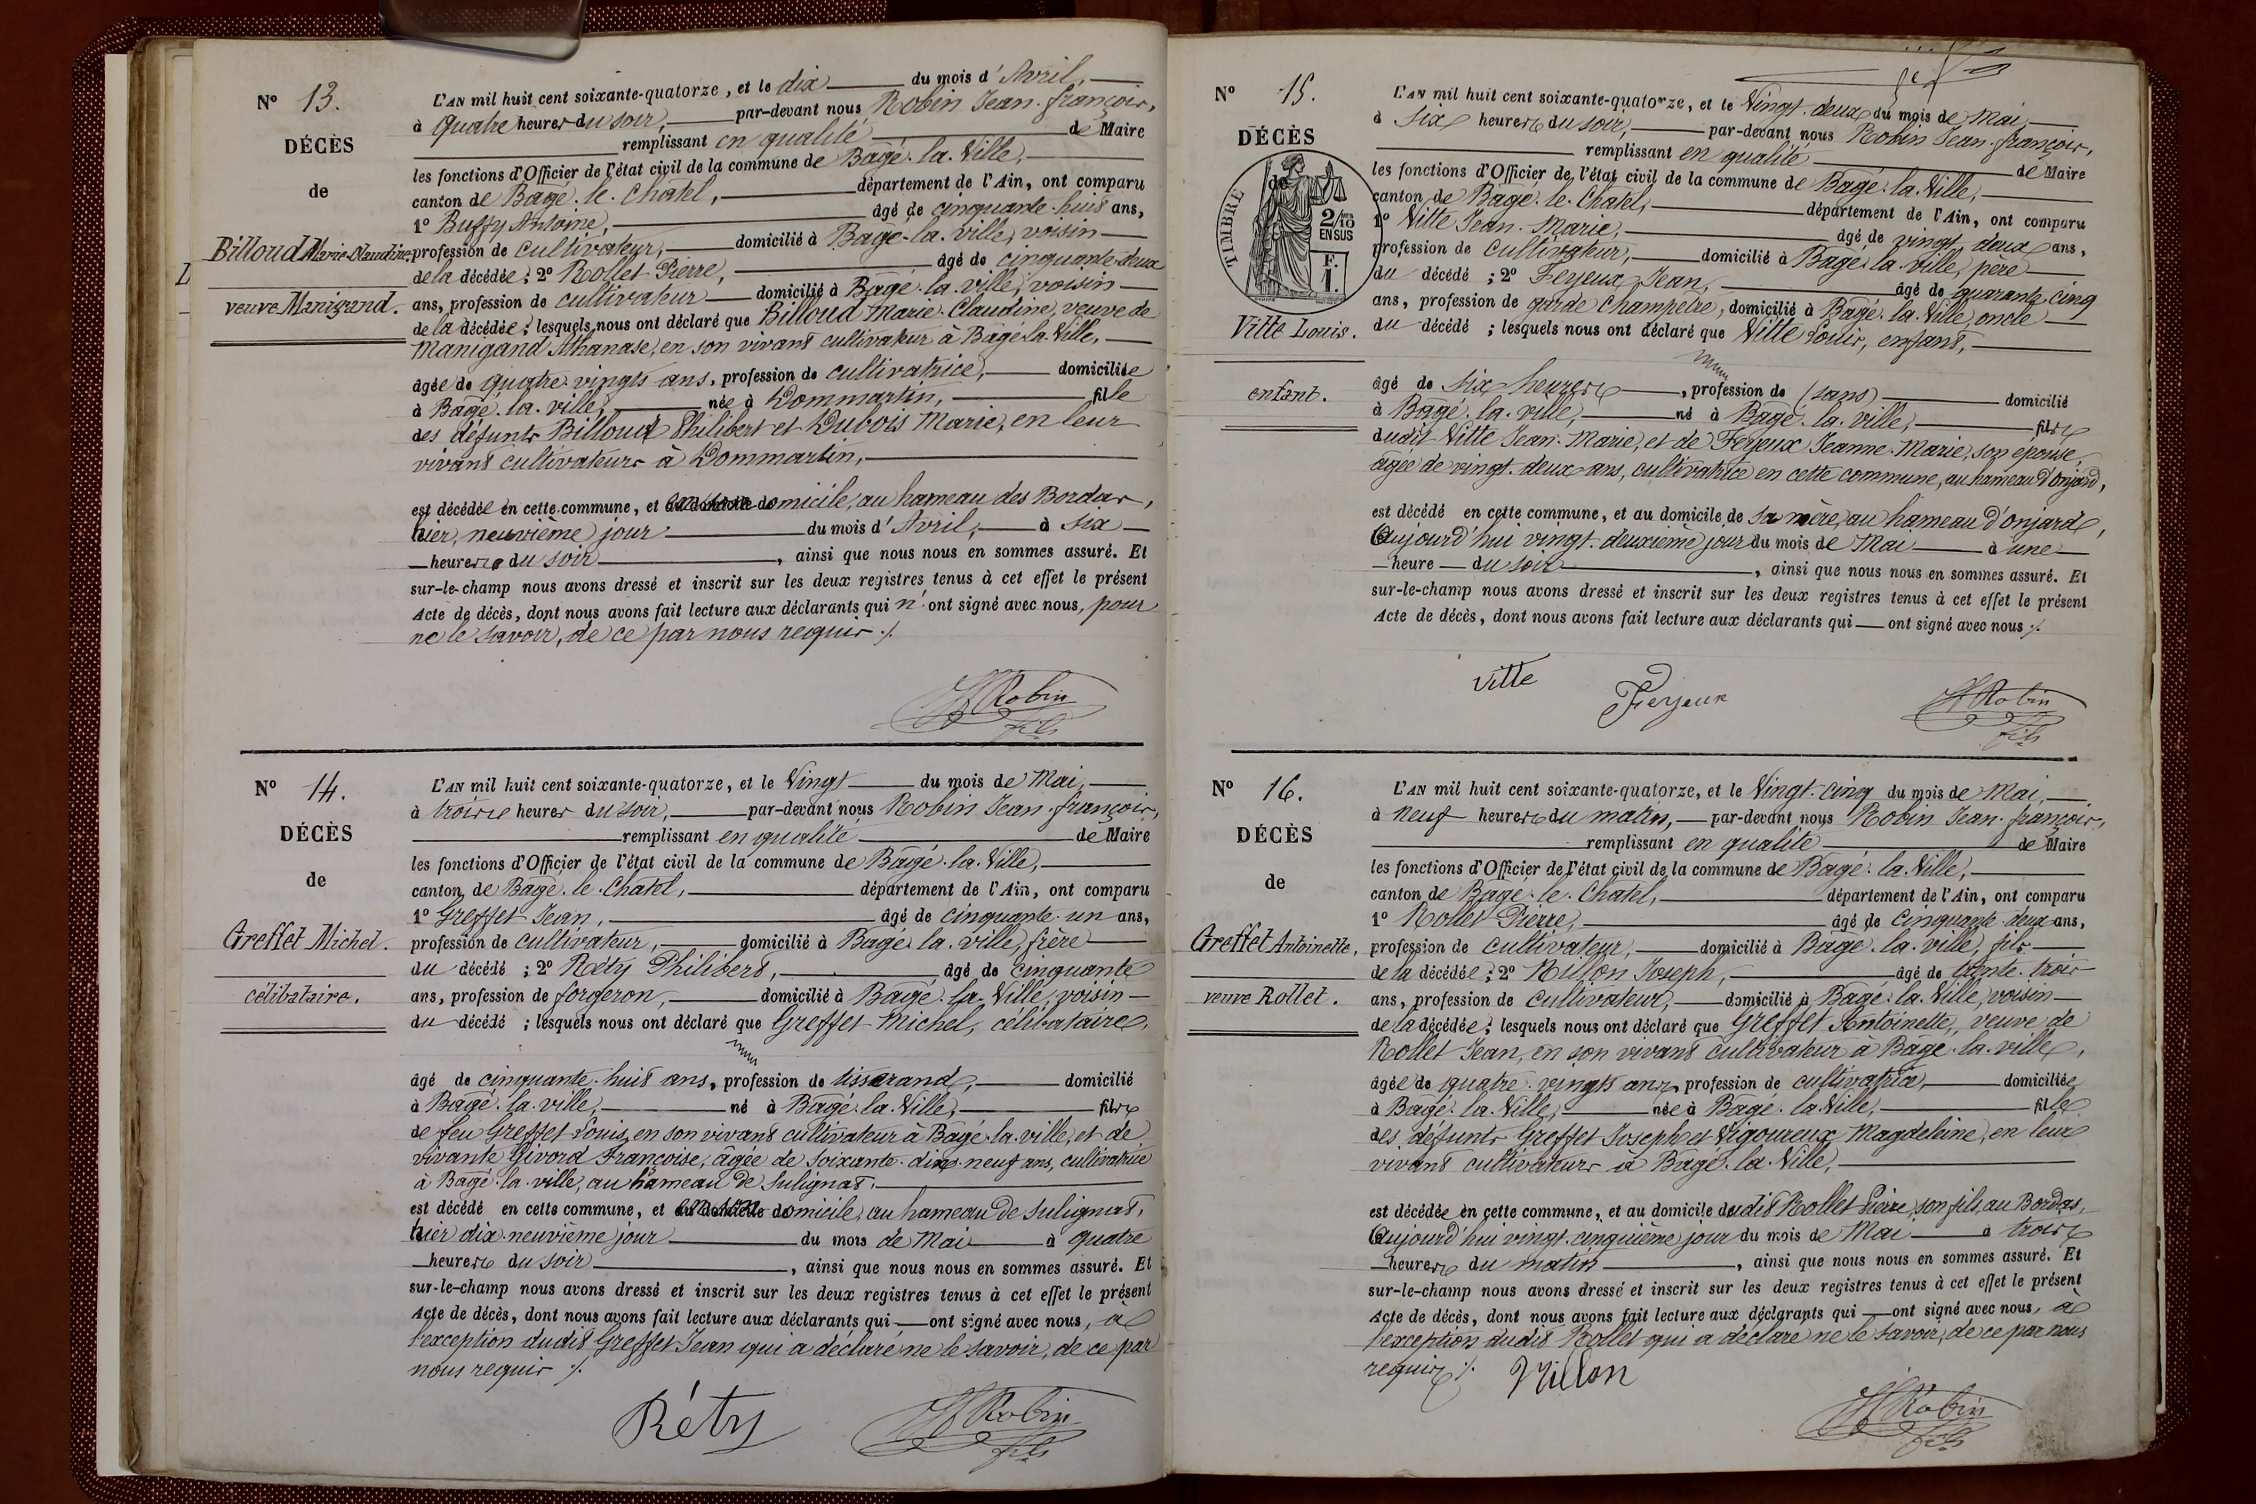 Nº 13.
DÉCÈS
de
Billoud Marie-Claudine,
veuve Manigand.
L'AN mil huit cent soixante-quatorze, et le dix du mois d'Avril,
à quatre heures du soir, par-devant nous Robin Jean-françois,
remplissant en qualité de Maire
les fonctions d'Officier de l'état civil de la commune de Bâgé-la-Ville,
canton de Bâgé-le-Châtel, département de l'Ain, ont comparu
1º Buffy Antoine, âgé de cinquante-huit ans,
profession de cultivateur, domicilié à Bâgé-la-ville, voisin
de la décédée; 2º Rollet Pierre, âgé de cinquante-deux
ans, profession de cultivateur domicilié à Bâgé-la-ville, voisin
de la décédée; lesquels nous ont déclaré que Billoud Marie-Claudine, veuve de
Manigand Athanase, en son vivant cultivateur à Bâgé-la-Ville,
âgée de quatre-vingts ans, profession de cultivatrice, domiciliée
à Bâgé-la-ville, née à Dommartin, fille
des défunts Billoud Philibert et Dubois Marie, en leur
vivant cultivateurs à Dommartin,
est décédée en cette commune, et en son domicile, au hameau des Bordas,
hier, neuvième jour du mois d'Avril, à six
heures du soir, ainsi que nous nous en sommes assuré. Et
sur-le-champ nous avons dressé et inscrit sur les deux registres tenus à cet effet le présent
Acte de décès, dont nous avons fait lecture aux déclarants qui n'ont signé avec nous, pour
ne le savoir, de ce par nous requis ./.
Robin
fils
Nº 14.
DÉCÈS
de
Greffet Michel.
célibataire.
L'AN mil huit cent soixante-quatorze, et le Vingt du mois de Mai,
à trois heures du soir, par-devant nous Robin Jean-françois,
remplissant en qualité de Maire
les fonctions d'Officier de l'état civil de la commune de Bâgé-la-Ville,
canton de Bâgé-le-Châtel, département de l'Ain, ont comparu
1º Greffet Jean, âgé de cinquante-un ans,
profession de cultivateur, domicilié à Bâgé-la-ville, frère
du décédé; 2º Réty Philibert, âgé de cinquante
ans, profession de forgeron, domicilié à Bâgé-la-Ville, voisin
du décédé; lesquels nous ont déclaré que Greffet Michel, célibataire,
âgé de cinquante-huit ans, profession de tisserand, domicilié
à Bâgé-la-ville, né à Bâgé-la-Ville, fils
de feu Greffet Louis, en son vivant cultivateur à Bâgé-la-ville, et de
vivante Givord Françoise, âgée de soixante-dix-neuf ans, cultivatrice
à Bâgé-la-ville, au hameau de Sulignat.
est décédé en cette commune, et en son domicile, au hameau de Sulignat,
hier dix-neuvième jour du mois de Mai à quatre
heures du soir, ainsi que nous nous en sommes assuré. Et
sur-le-champ nous avons dressé et inscrit sur les deux registres tenus à cet effet le présent
Acte de décès, dont nous avons fait lecture aux déclarants qui ont signé avec nous, à
l'exception dudit Greffet Jean qui a déclaré ne le savoir, de ce par
nous requis ./.
Réty
Robin
fils
Nº 15.
DÉCÈS
de
TIMBRE
2/10
EN SUS
F.
1.
Vitte Louis.
enfant.
L'AN mil huit cent soixante-quatorze, et le Vingt-deux du mois de Mai
à six heures du soir, par-devant nous Robin Jean-françois,
remplissant en qualité de Maire
les fonctions d'Officier de l'état civil de la commune de Bâgé-la-Ville,
canton de Bâgé-le-Châtel, département de l'Ain, ont comparu
1º Vitte Jean-Marie, âgé de vingt-deux ans,
profession de cultivateur, domicilié à Bâgé-la-ville, père
du décédé; 2º Feyeux Jean, âgé de quarante-cinq
ans, profession de garde champêtre, domicilié à Bâgé-la-Ville, oncle
du décédé; lesquels nous ont déclaré que Vitte Louis, enfant,
âgé de six heures, profession de (sans) domicilié
à Bâgé-la-ville, né à Bâgé-la-ville, fils
dudit Vitte Jean-Marie, et de Feyeux Jeanne-Marie, son épouse,
âgée de vingt-deux ans, cultivatrice en cette commune, au hameau d'Onjard,
est décédé en cette commune, et au domicile de sa mère, au hameau d'onjard,
Aujourd'hui vingt-deuxième jour du mois de Mai à une
heure du soir, ainsi que nous nous en sommes assuré. Et
sur-le-champ nous avons dressé et inscrit sur les deux registres tenus à cet effet le présent
Acte de décès, dont nous avons fait lecture aux déclarants qui ont signé avec nous ./.
Vitte
Feyeux
Robin
fils
Nº 16.
DÉCÈS
de
Greffet Antoinette,
veuve Rollet.
L'AN mil huit cent soixante-quatorze, et le Vingt-cinq du mois de Mai,
à neuf heures du matin, par-devant nous Robin Jean-françois,
remplissant en qualité de Maire
les fonctions d'Officier de l'état civil de la commune de Bâgé-la-Ville,
canton de Bâgé-le-Châtel, département de l'Ain, ont comparu
1º Rollet Pierre, âgé de Cinquante-deux ans,
profession de cultivateur, domicilié à Bâgé-la-ville, fils
de la décédée; 2º Joseph, âgé de trente-trois
ans, profession de cultivateur, domicilié à Bâgé-la-Ville, voisin
de la décédée; lesquels nous ont déclaré que Greffet Antoinette, veuve de
Rollet Jean, en son vivant cultivateur à Bâgé-la-ville,
âgée de quatre-vingts ans, profession de cultivatrice, domiciliée
à Bâgé-la-Ville, née à Bâgé-la-Ville, fille
des défunts Greffet Joseph et Vigoureux Magdeleine, en leur
vivant cultivateurs à Bâgé-la-Ville,
est décédée en cette commune, et au domicile dudit Rollet Pierre, son fils, au Bordas,
Aujourd'hui vingt-cinquième jour du mois de Mai à trois
heures du matin, ainsi que nous nous en sommes assuré. Et
sur-le-champ nous avons dressé et inscrit sur les deux registres tenus à cet effet le présent
Acte de décès, dont nous avons fait lecture aux déclarants qui ont signé avec nous, à
l'exception dudit Rollet qui a déclaré ne le savoir, de ce par nous
requis ./.
Robin
fils